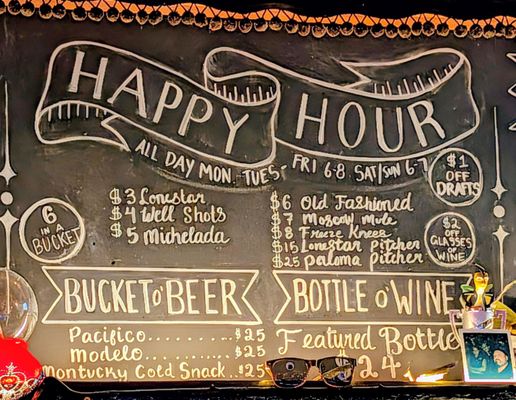 HAPPY HOUR
ALL DAY MON. TUES. FRI 6-8 SAT/SUN 6-7
$1 OFF DRAFTS
$3 Lonestar
$4 Well Shots
$5 Michelada
$6 Old Fashioned
$7 Moscow Mule
$8 Freeze Knees
$15 Lonestar Pitcher
$25 Paloma Pitcher
6 IN A BUCKET
$2 OFF GLASSES OF WINE
BUCKET O' BEER
Pacifico.......... $25
Modelo............ $25
Montucky Cold Snack.. $25
BOTTLE O' WINE
Featured Bottle
24